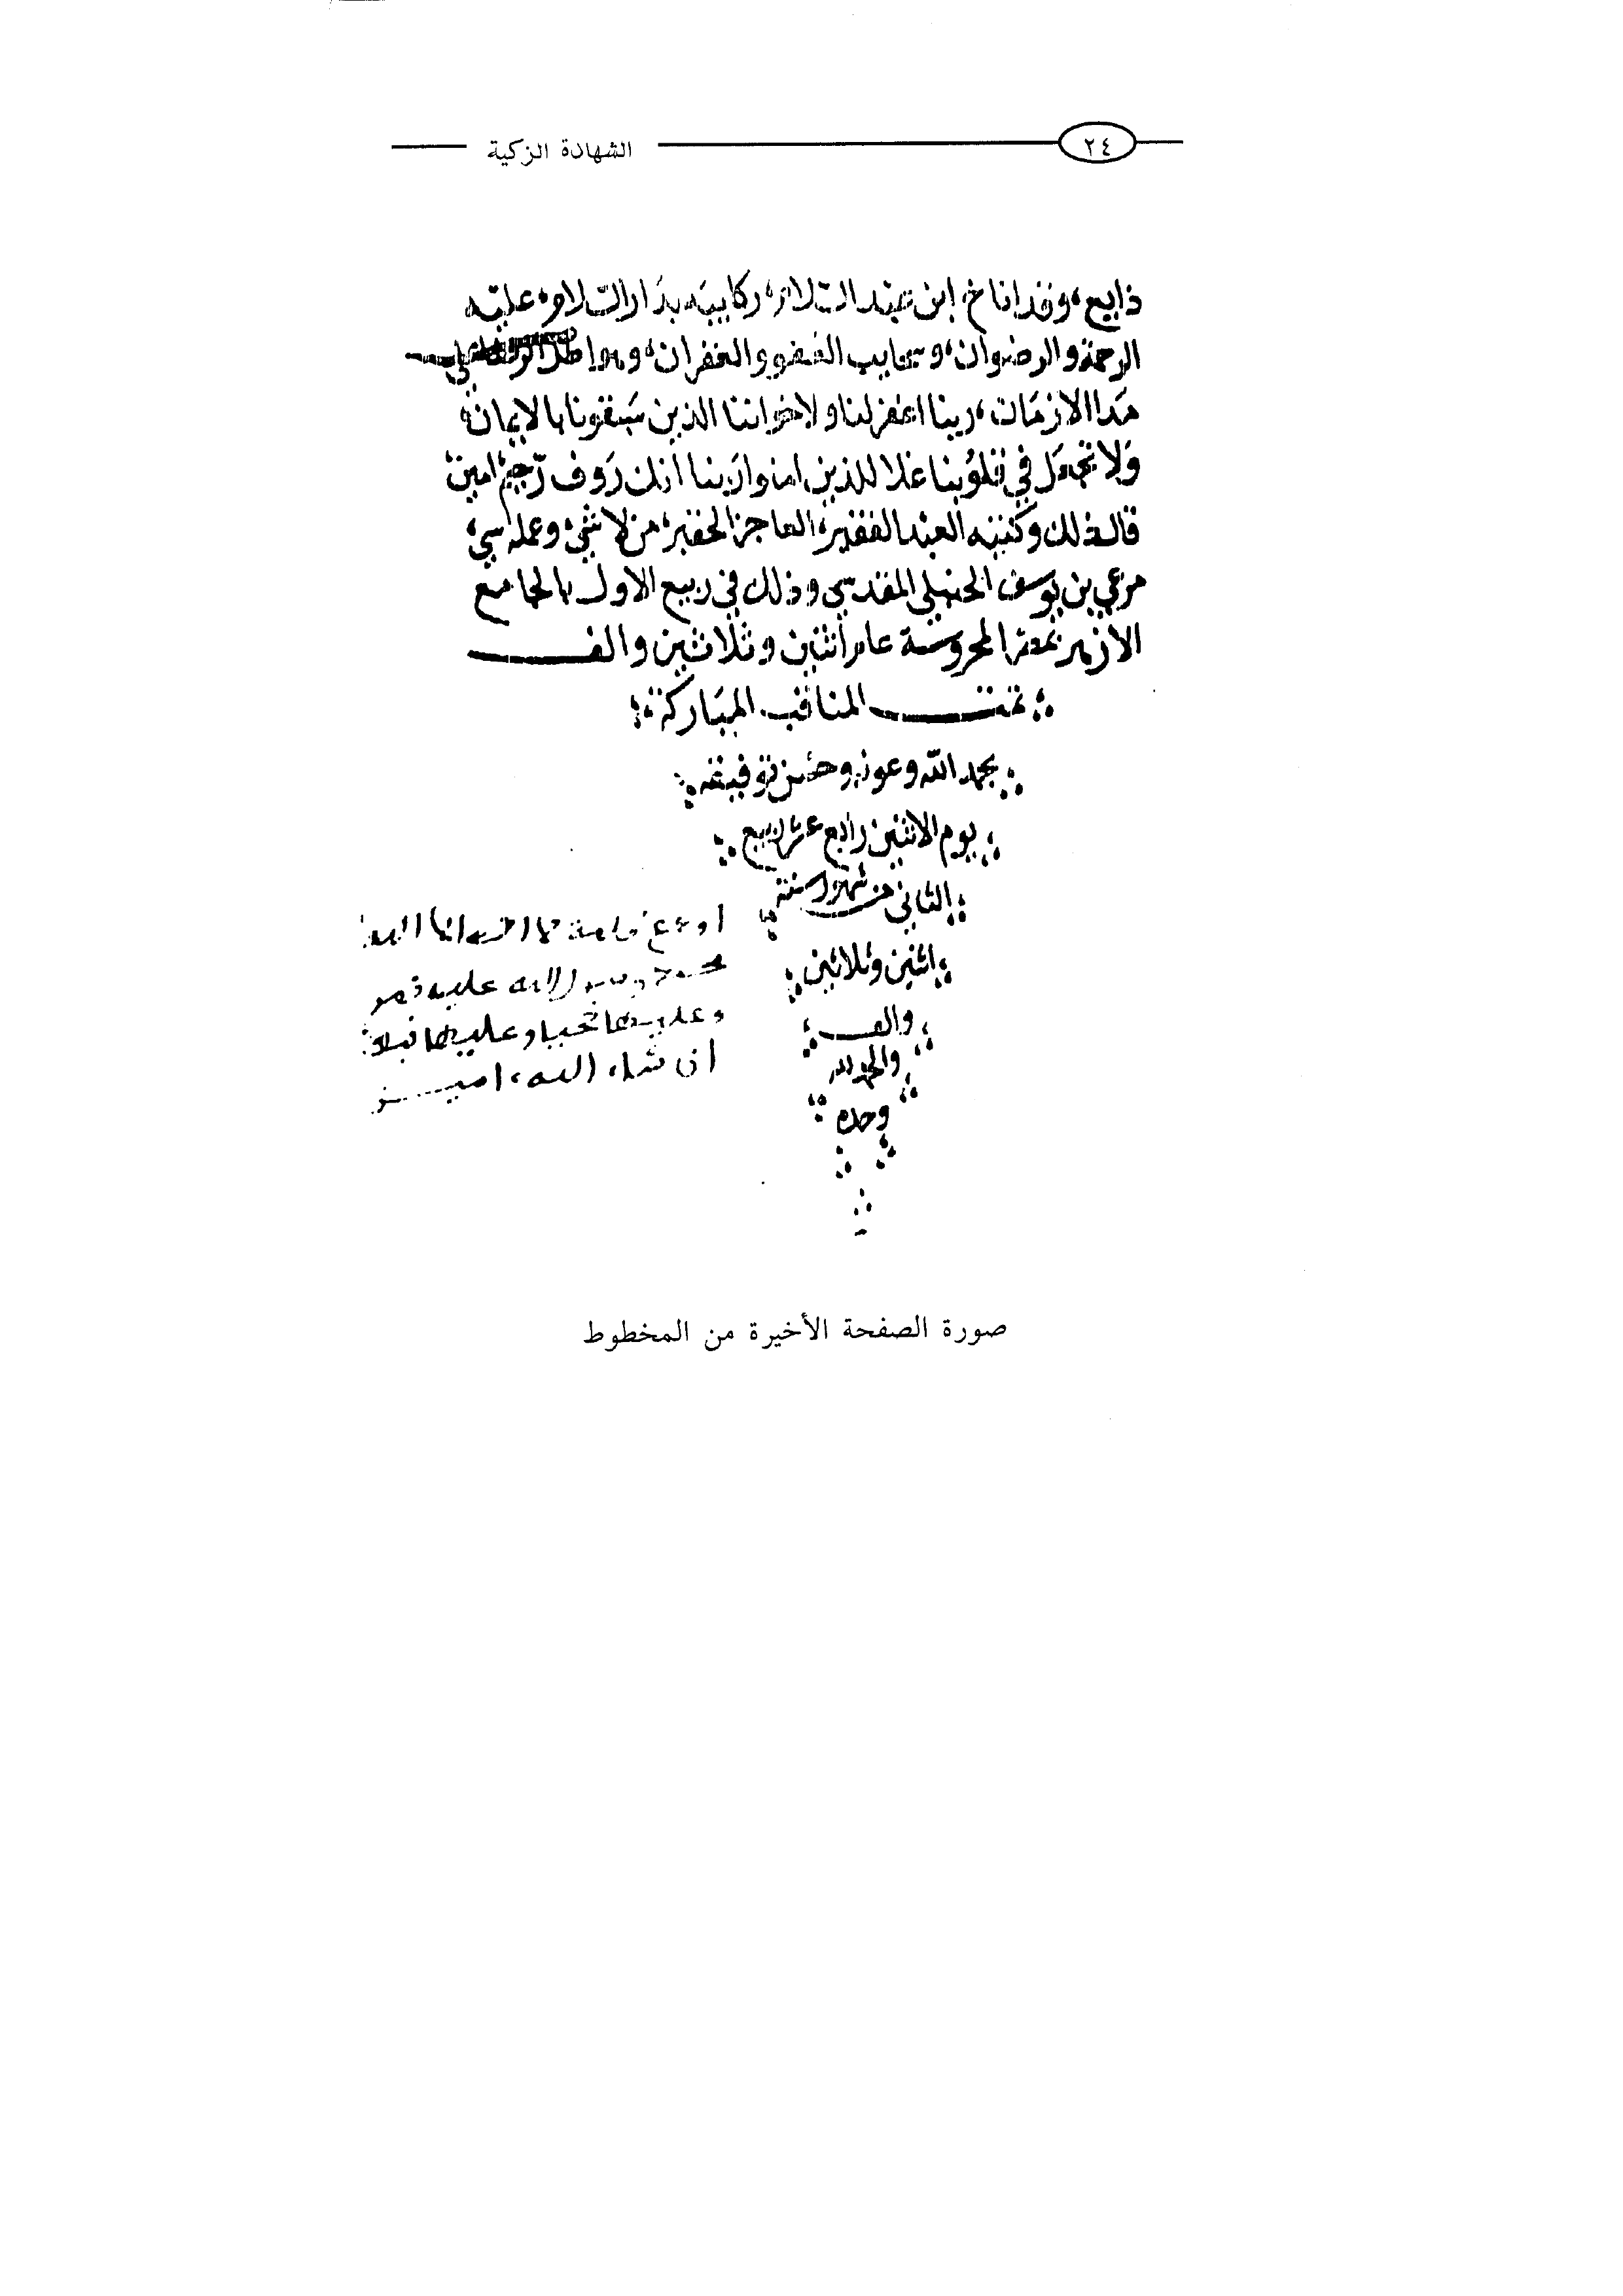 ٢٤
الشهادة الزكية
ذايع، وقد اناخ ابن عبد السلام، ركايبه بدار السلام، عليه
الرحمة والرضوان، وسحايب العفو والغفران، وهواطل
مدا الازمان، ربنا اغفر لنا ولاخواننا الذين سبقونا بالايمان،
ولا تجعل في قلوبنا غلا للذين امنوا ربنا انك رؤف رحيم، امين،
قال ذلك وكتبه العبد الفقير، العاجز الحقير، من لا شيء، وعمله سيء،
مرعي بن يوسف الحنبلي المقدسي وذلك في ربيع الاول بالجامع
الازهر بمصر المحروسة عام اثنين وثلاثين والف
تمت المناقب المباركة
بحمد الله وعونه وحسن توفيقه
يوم الاثنين رابع عشر ربيع
الثاني من شهور سنة
اثنين وثلاثين
والف
والحمد لله
وحده
ان شاء الله، امين
صورة الصفحة الأخيرة من المخطوط